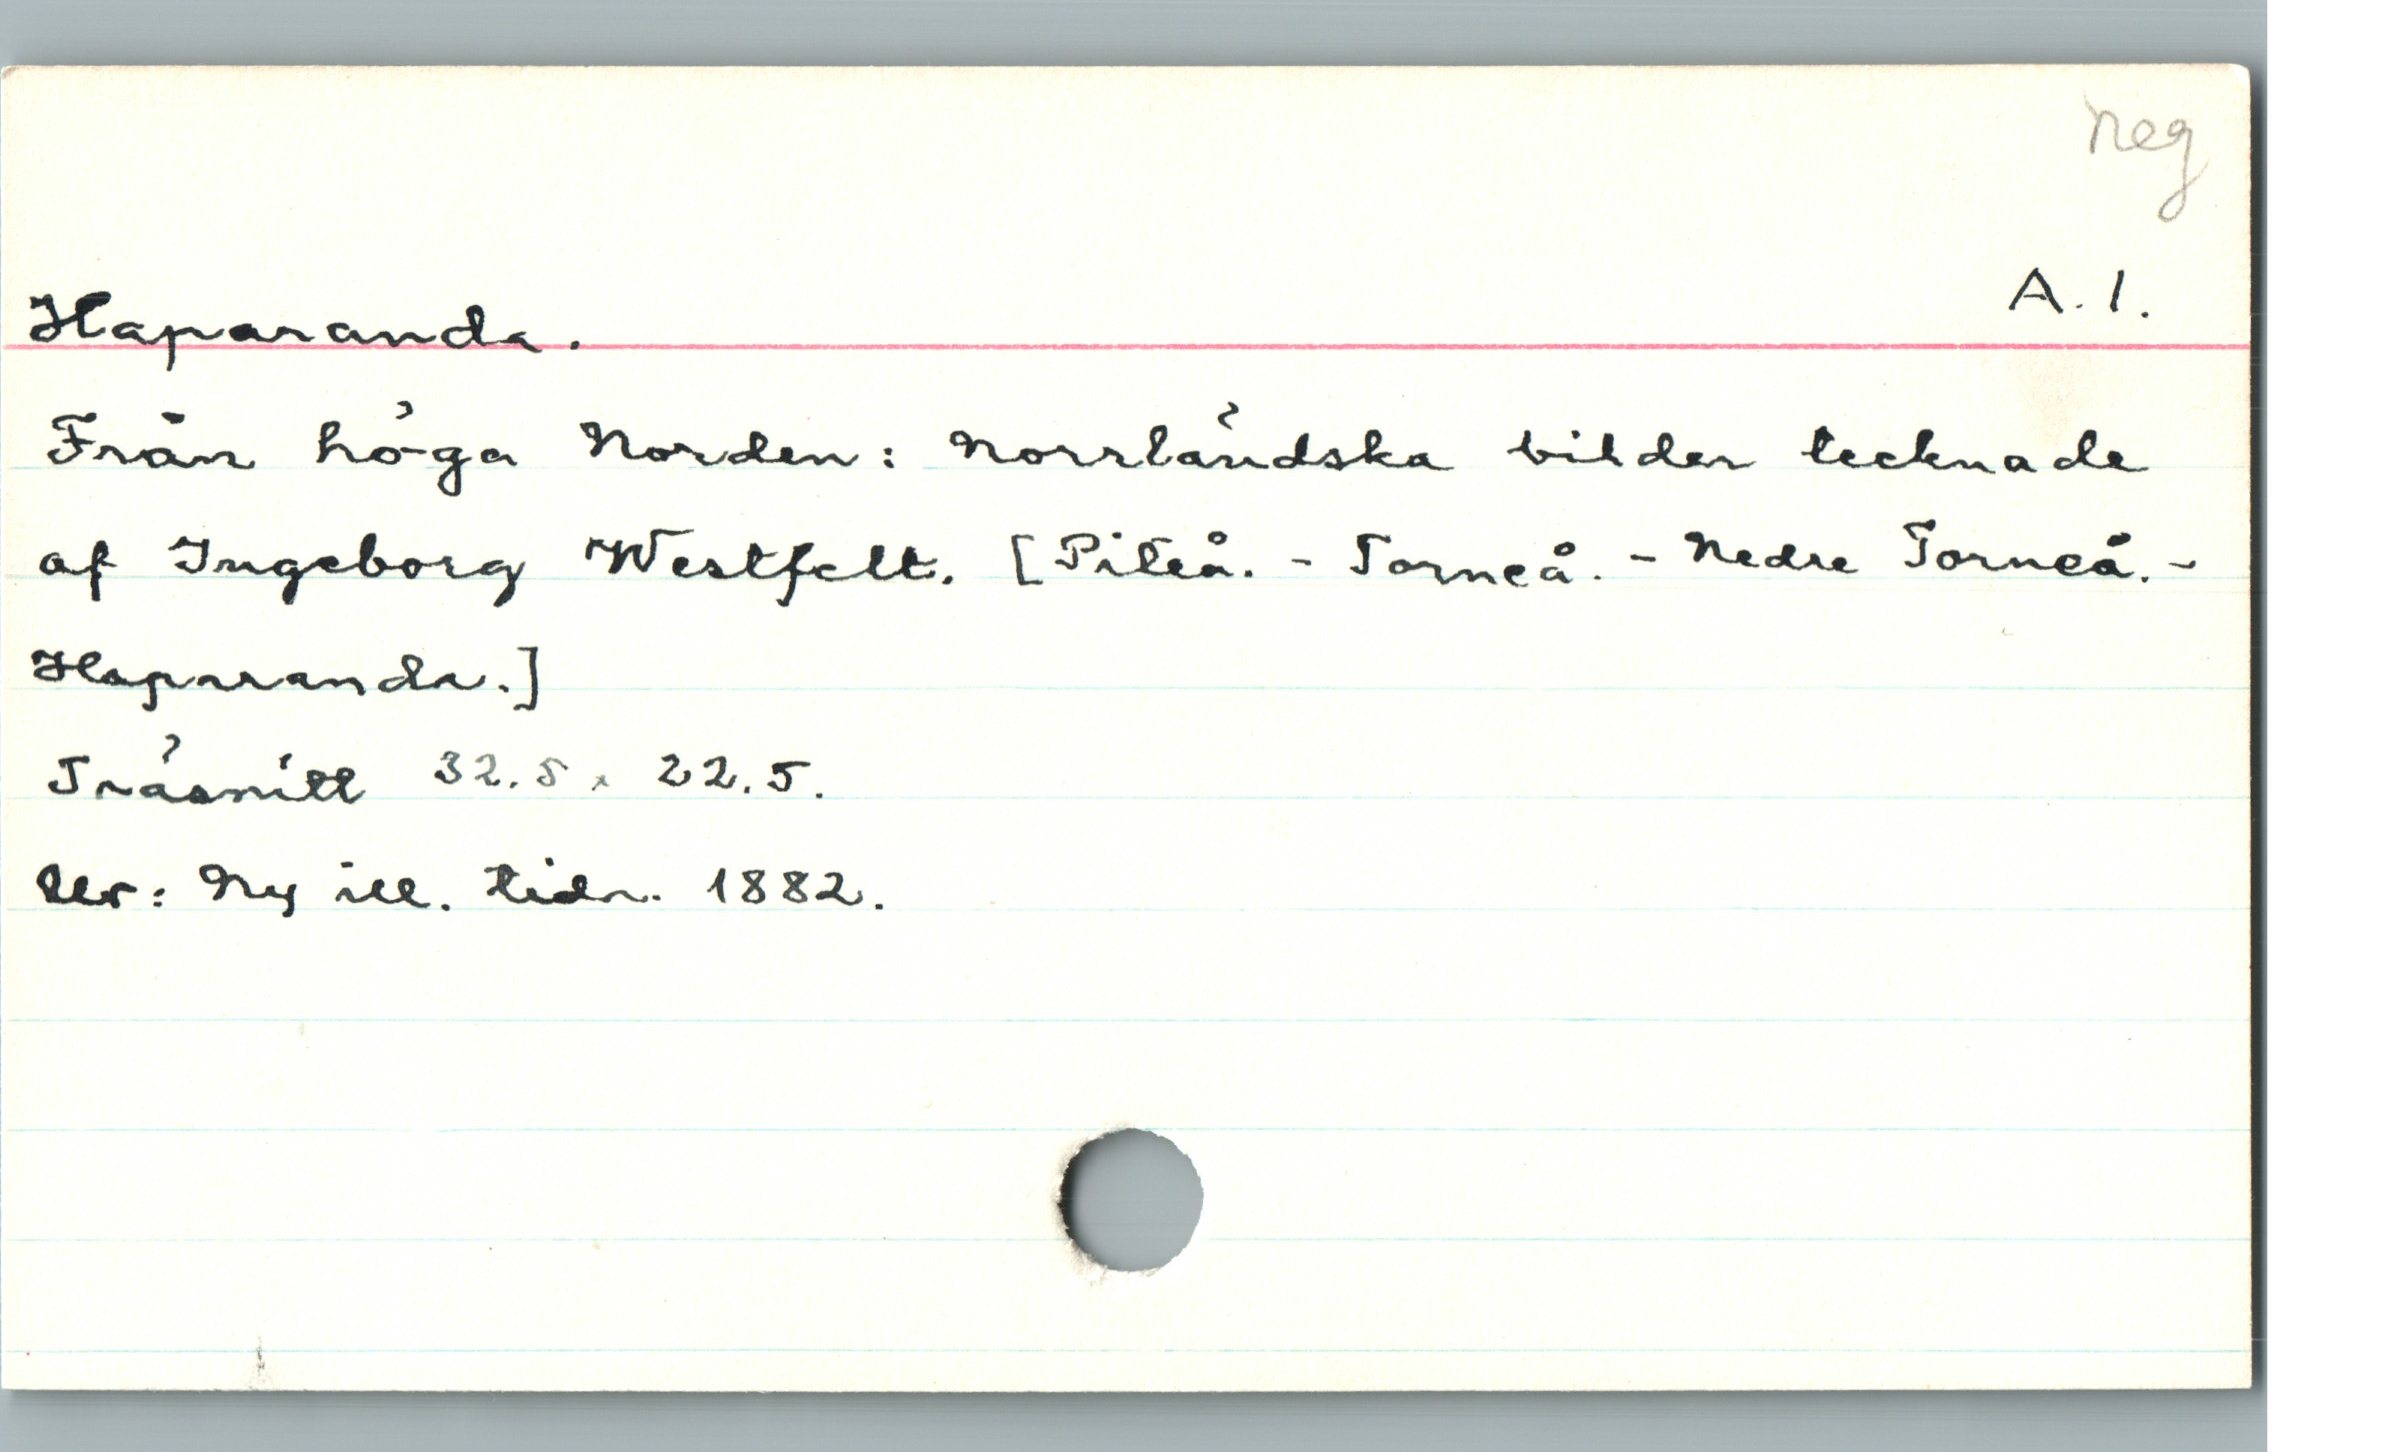 neg
A. 1.
Haparanda.
Från höga Norden: Norrländska bilder tecknade
af Ingeborg Westfelt. [Piteå. - Torneå. - Nedre Torneå. -
Haparanda.]
Träsnitt 32.5 x 22.5.
Ur: Ny ill. tidn. 1882.